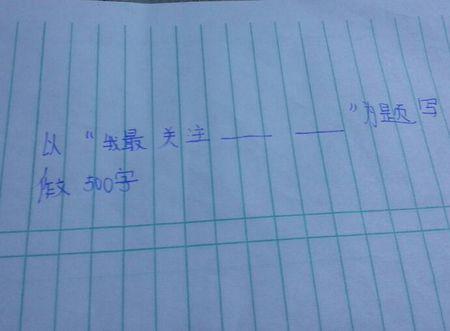 以“我最关注—— ——”为题写
作文 500字